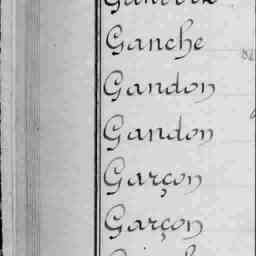 Ganche
Gandon
Gandon
Garçon
Garçon